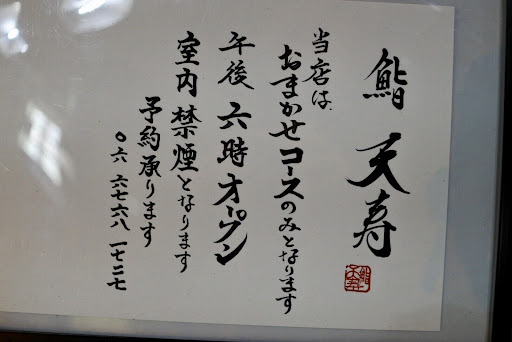 鮨 天寿
当店は
おまかせコースのみとなります
午後 六時オープン
室内 禁煙となります
予約承ります
〇六 六七六八 一七二七